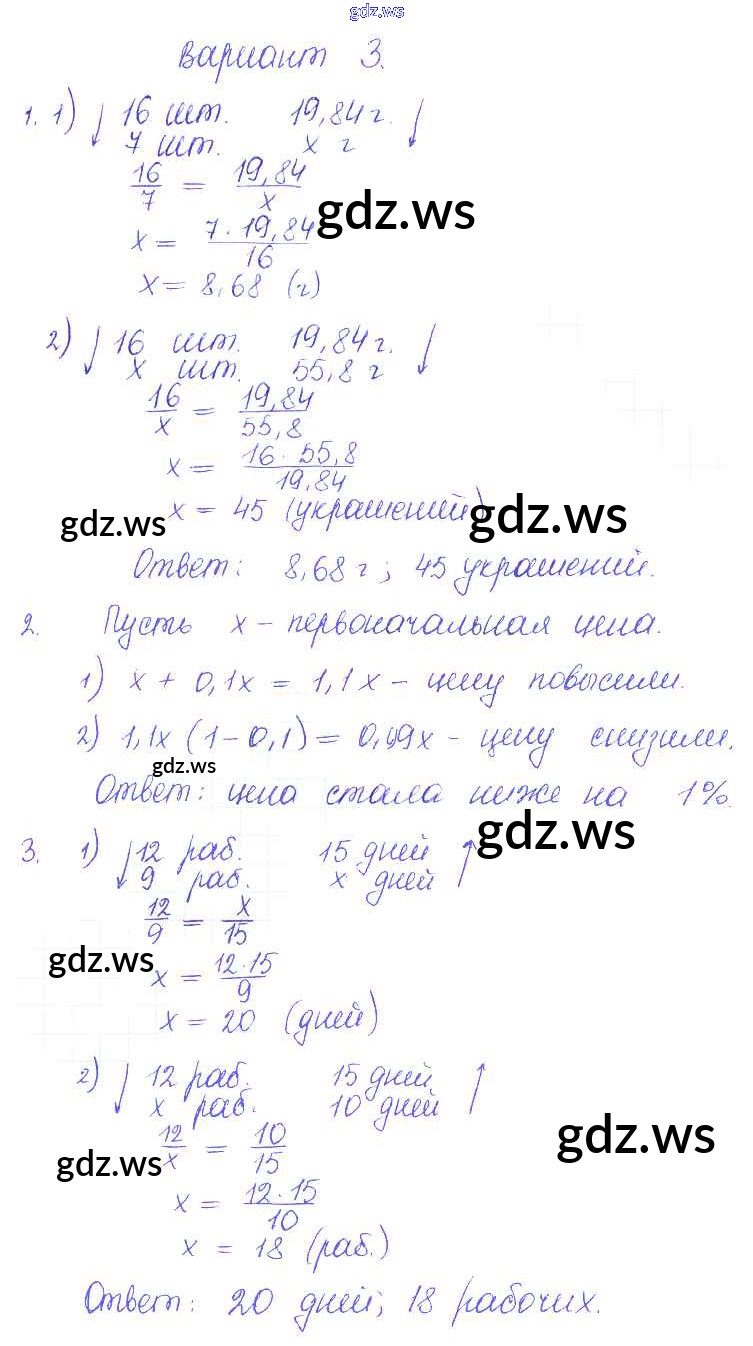 gdz.ws
Вариант 3.
1. 1) ↓ 16 шт. 19,84 г. ↓
7 шт. x г
16/7 = 19,84/x
gdz.ws
x = 7·19,84/16
x = 8,68 (г)
2) ↓ 16 шт. 19,84 г. ↓
x шт. 55,8 г
16/x = 19,84/55,8
x = 16·55,8/19,84
gdz.ws x = 45 (украшений) gdz.ws
Ответ: 8,68 г; 45 украшений.
2. Пусть x - первоначальная цена.
1) x + 0,1x = 1,1x - цену повысили.
2) 1,1x (1-0,1) = 0,99x - цену снизили.
gdz.ws
Ответ: цена стала ниже на 1%.
gdz.ws
3. 1) ↓ 12 раб. 15 дней ↑
9 раб. x дней
12/9 = x/15
gdz.ws
x = 12·15/9
x = 20 (дней)
2) ↓ 12 раб. 15 дней ↑
x раб. 10 дней
gdz.ws
12/x = 10/15
gdz.ws
x = 12·15/10
x = 18 (раб.)
Ответ: 20 дней; 18 рабочих.